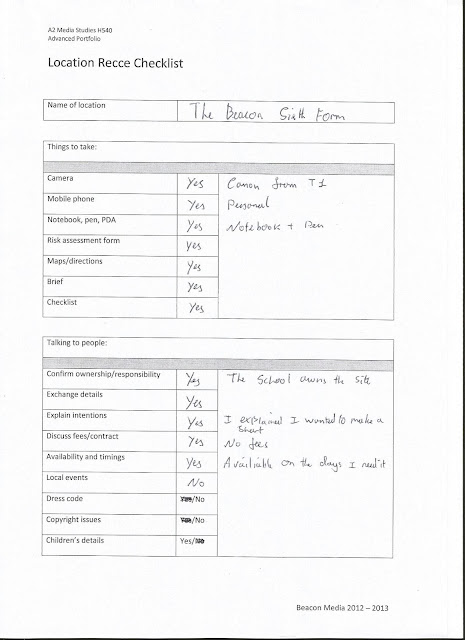 A2 Media Studies H540
Advanced Portfolio
Location Recce Checklist
Name of location The Beacon Sixth Form
Things to take:
Camera Yes Canon from T1
Mobile phone Yes Personal
Notebook, pen, PDA Yes Notebook + Pen
Risk assessment form Yes
Maps/directions Yes
Brief Yes
Checklist Yes
Talking to people:
Confirm ownership/responsibility Yes The School owns the site
Exchange details Yes
Explain intentions Yes I explained I wanted to make a
short
Discuss fees/contract Yes No fees
Availability and timings Yes Availiable on the days I need it
Local events No
Dress code Yes/No
Copyright issues Yes/No
Children's details Yes/No
Beacon Media 2012 – 2013